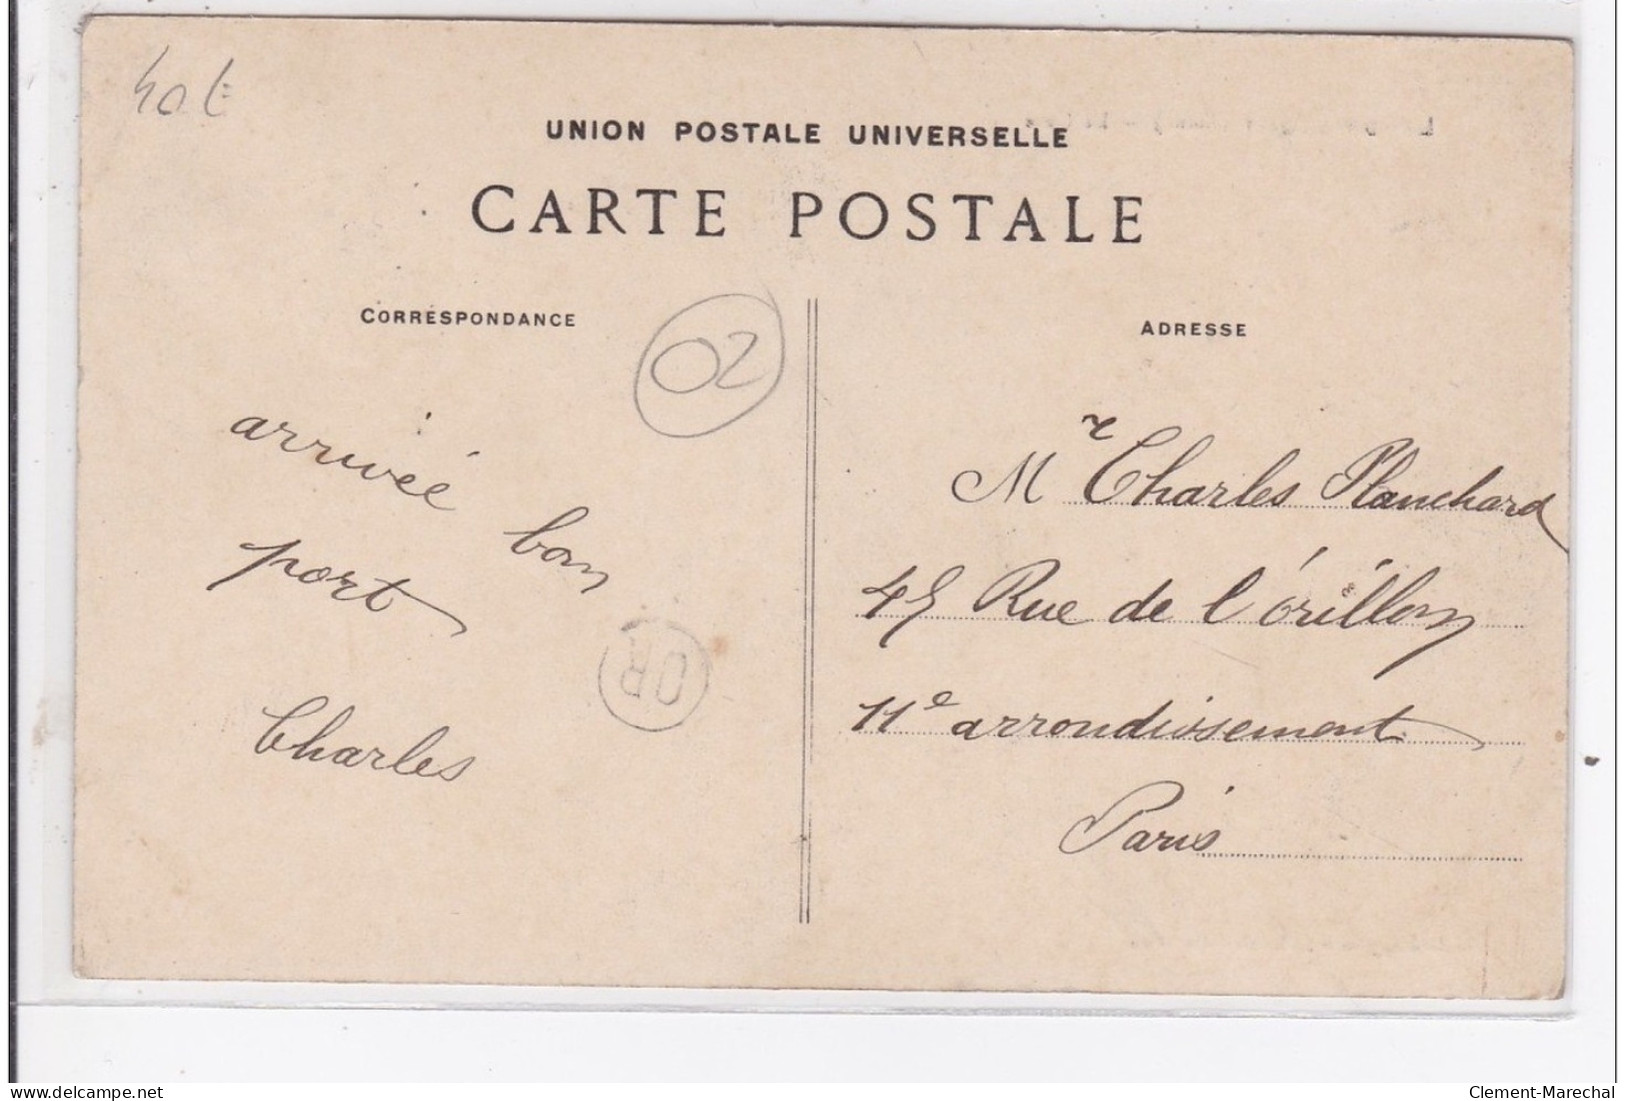 40 E
UNION POSTALE UNIVERSELLE
CARTE POSTALE
CORRESPONDANCE
02
arrivée bon
port
OR
Charles
ADRESSE
Mr Charles Planchard
45 Rue de l'orillon
11e arrondissement
Paris
delcampe.net
Clement-Marechal